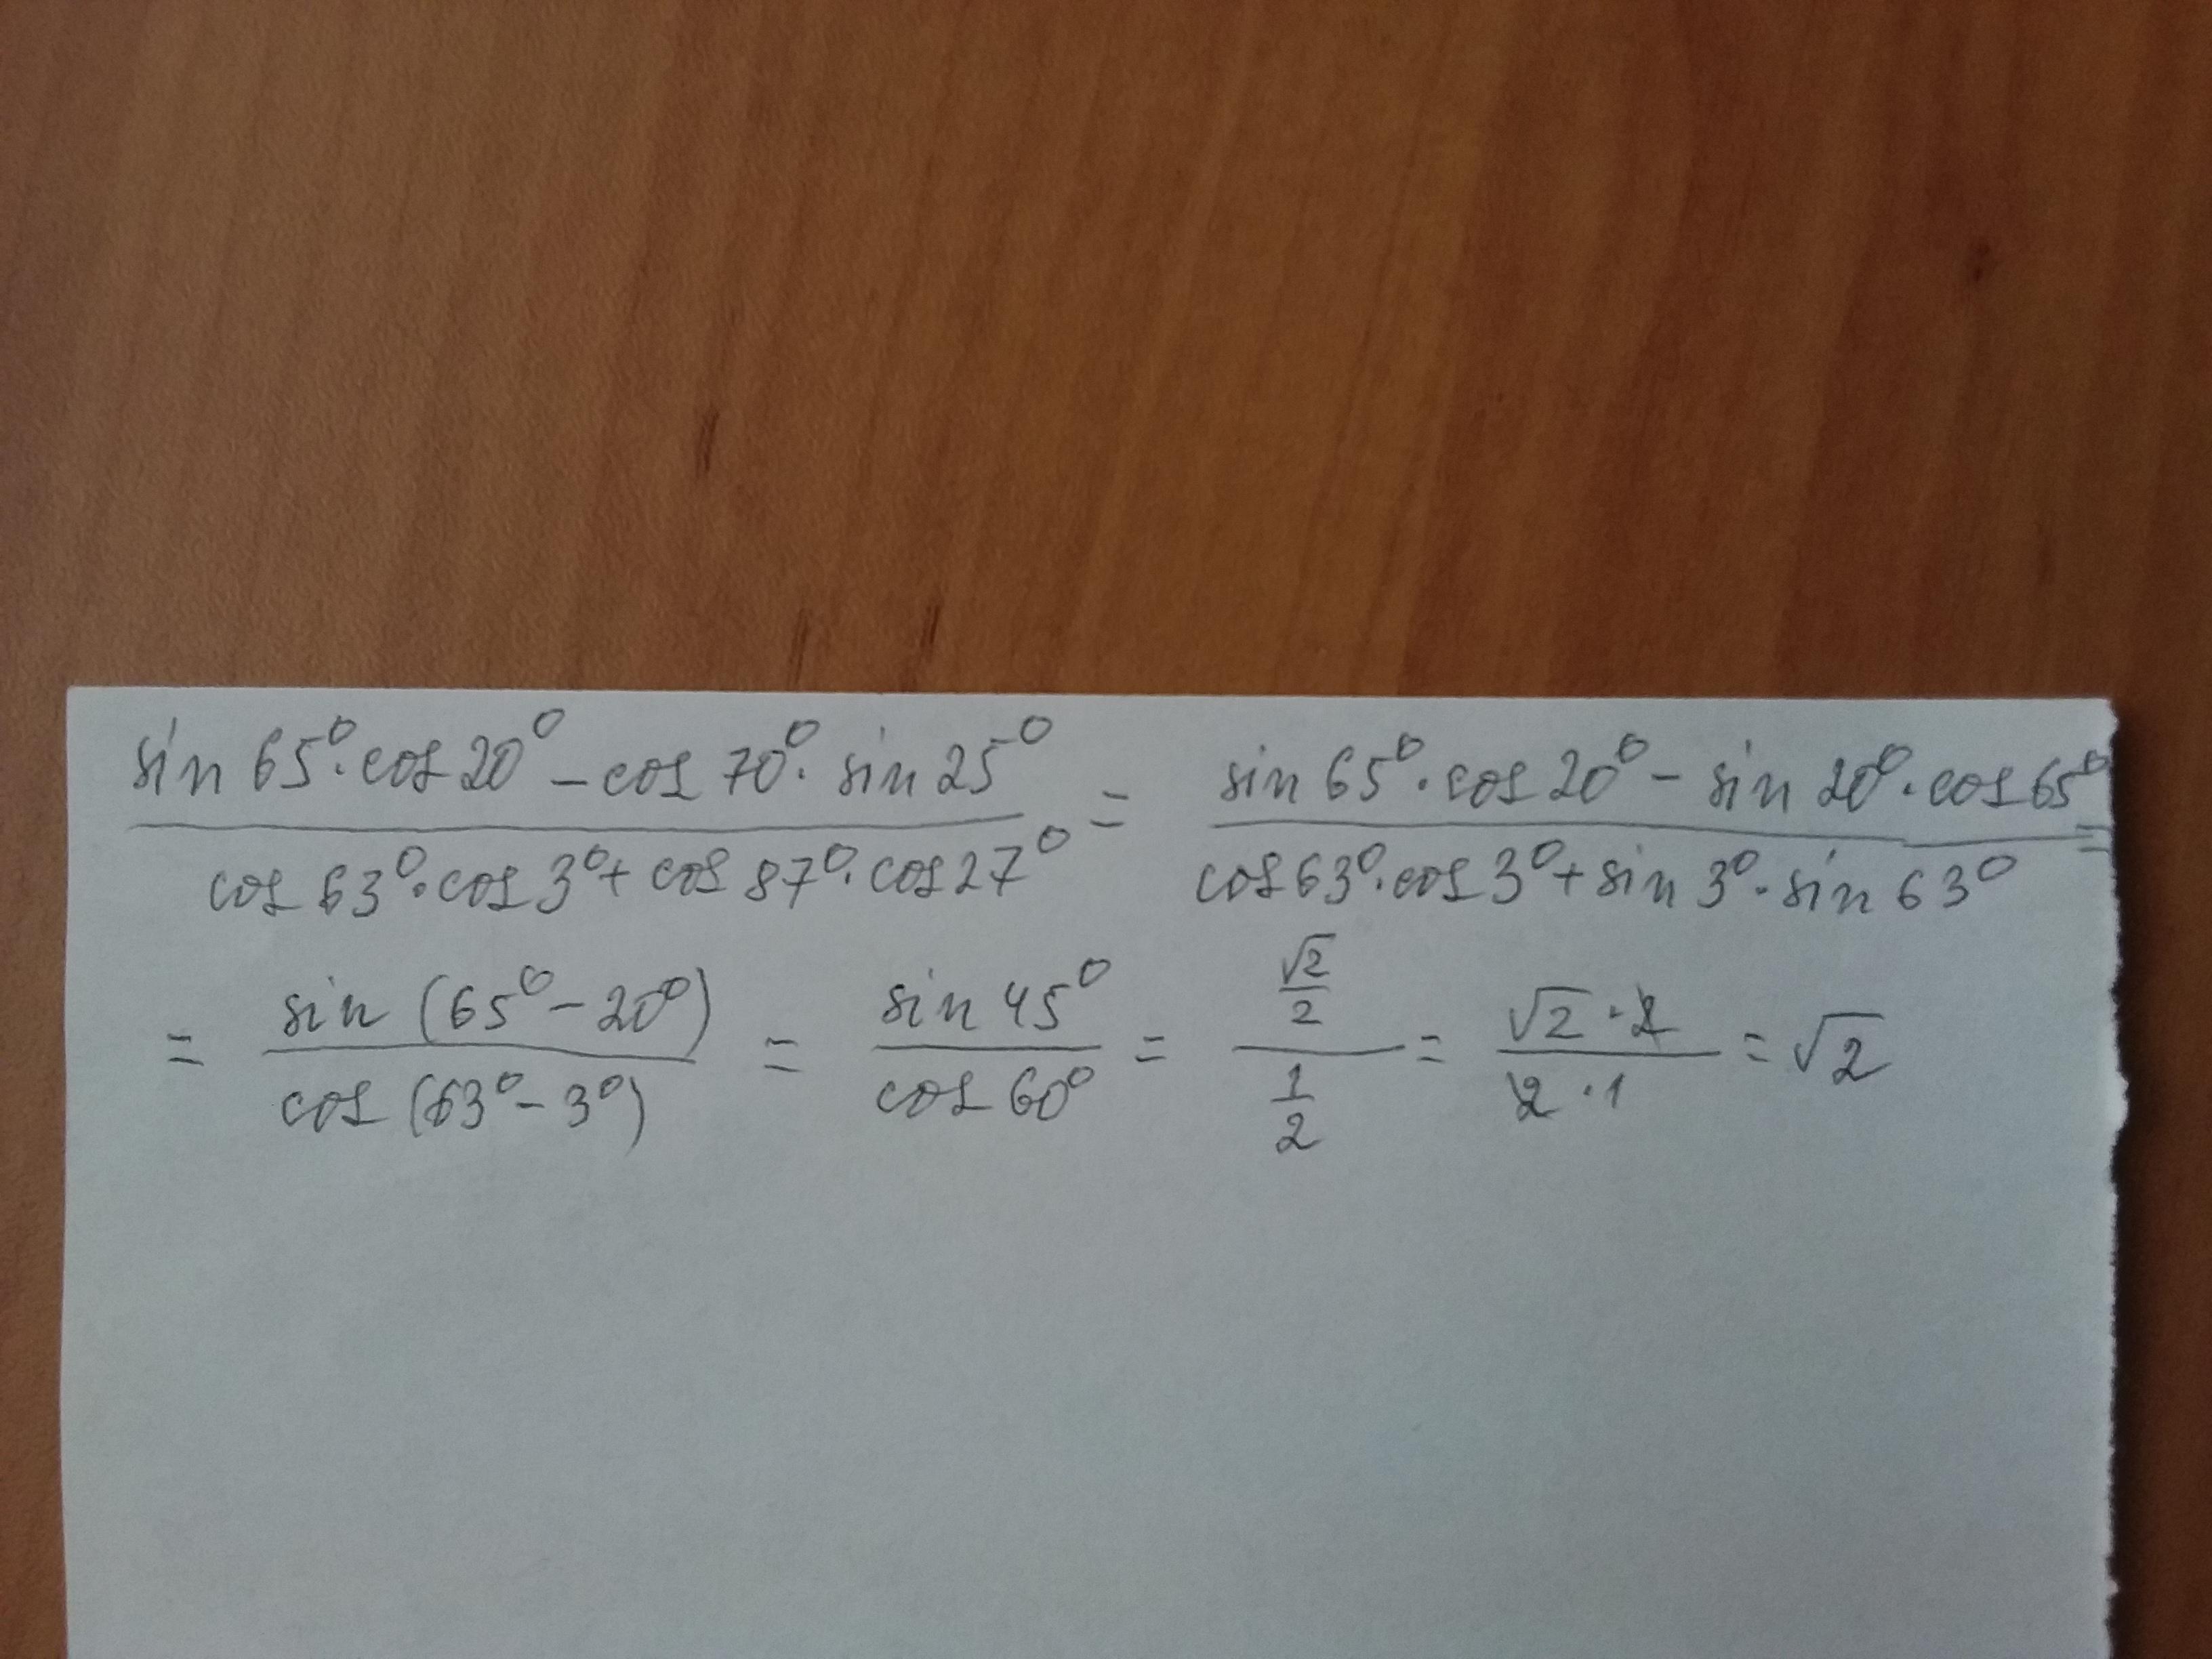 (sin 65° · cos 20° − cos 70° · sin 25°) / (cos 63° · cos 3° + cos 87° · cos 27°) = (sin 65° · cos 20° − sin 20° · cos 65°) / (cos 63° · cos 3° + sin 3° · sin 63°) =
= sin (65° − 20°) / cos (63° − 3°) = sin 45° / cos 60° = (√2/2) / (1/2) = (√2 · 2) / (2 · 1) = √2